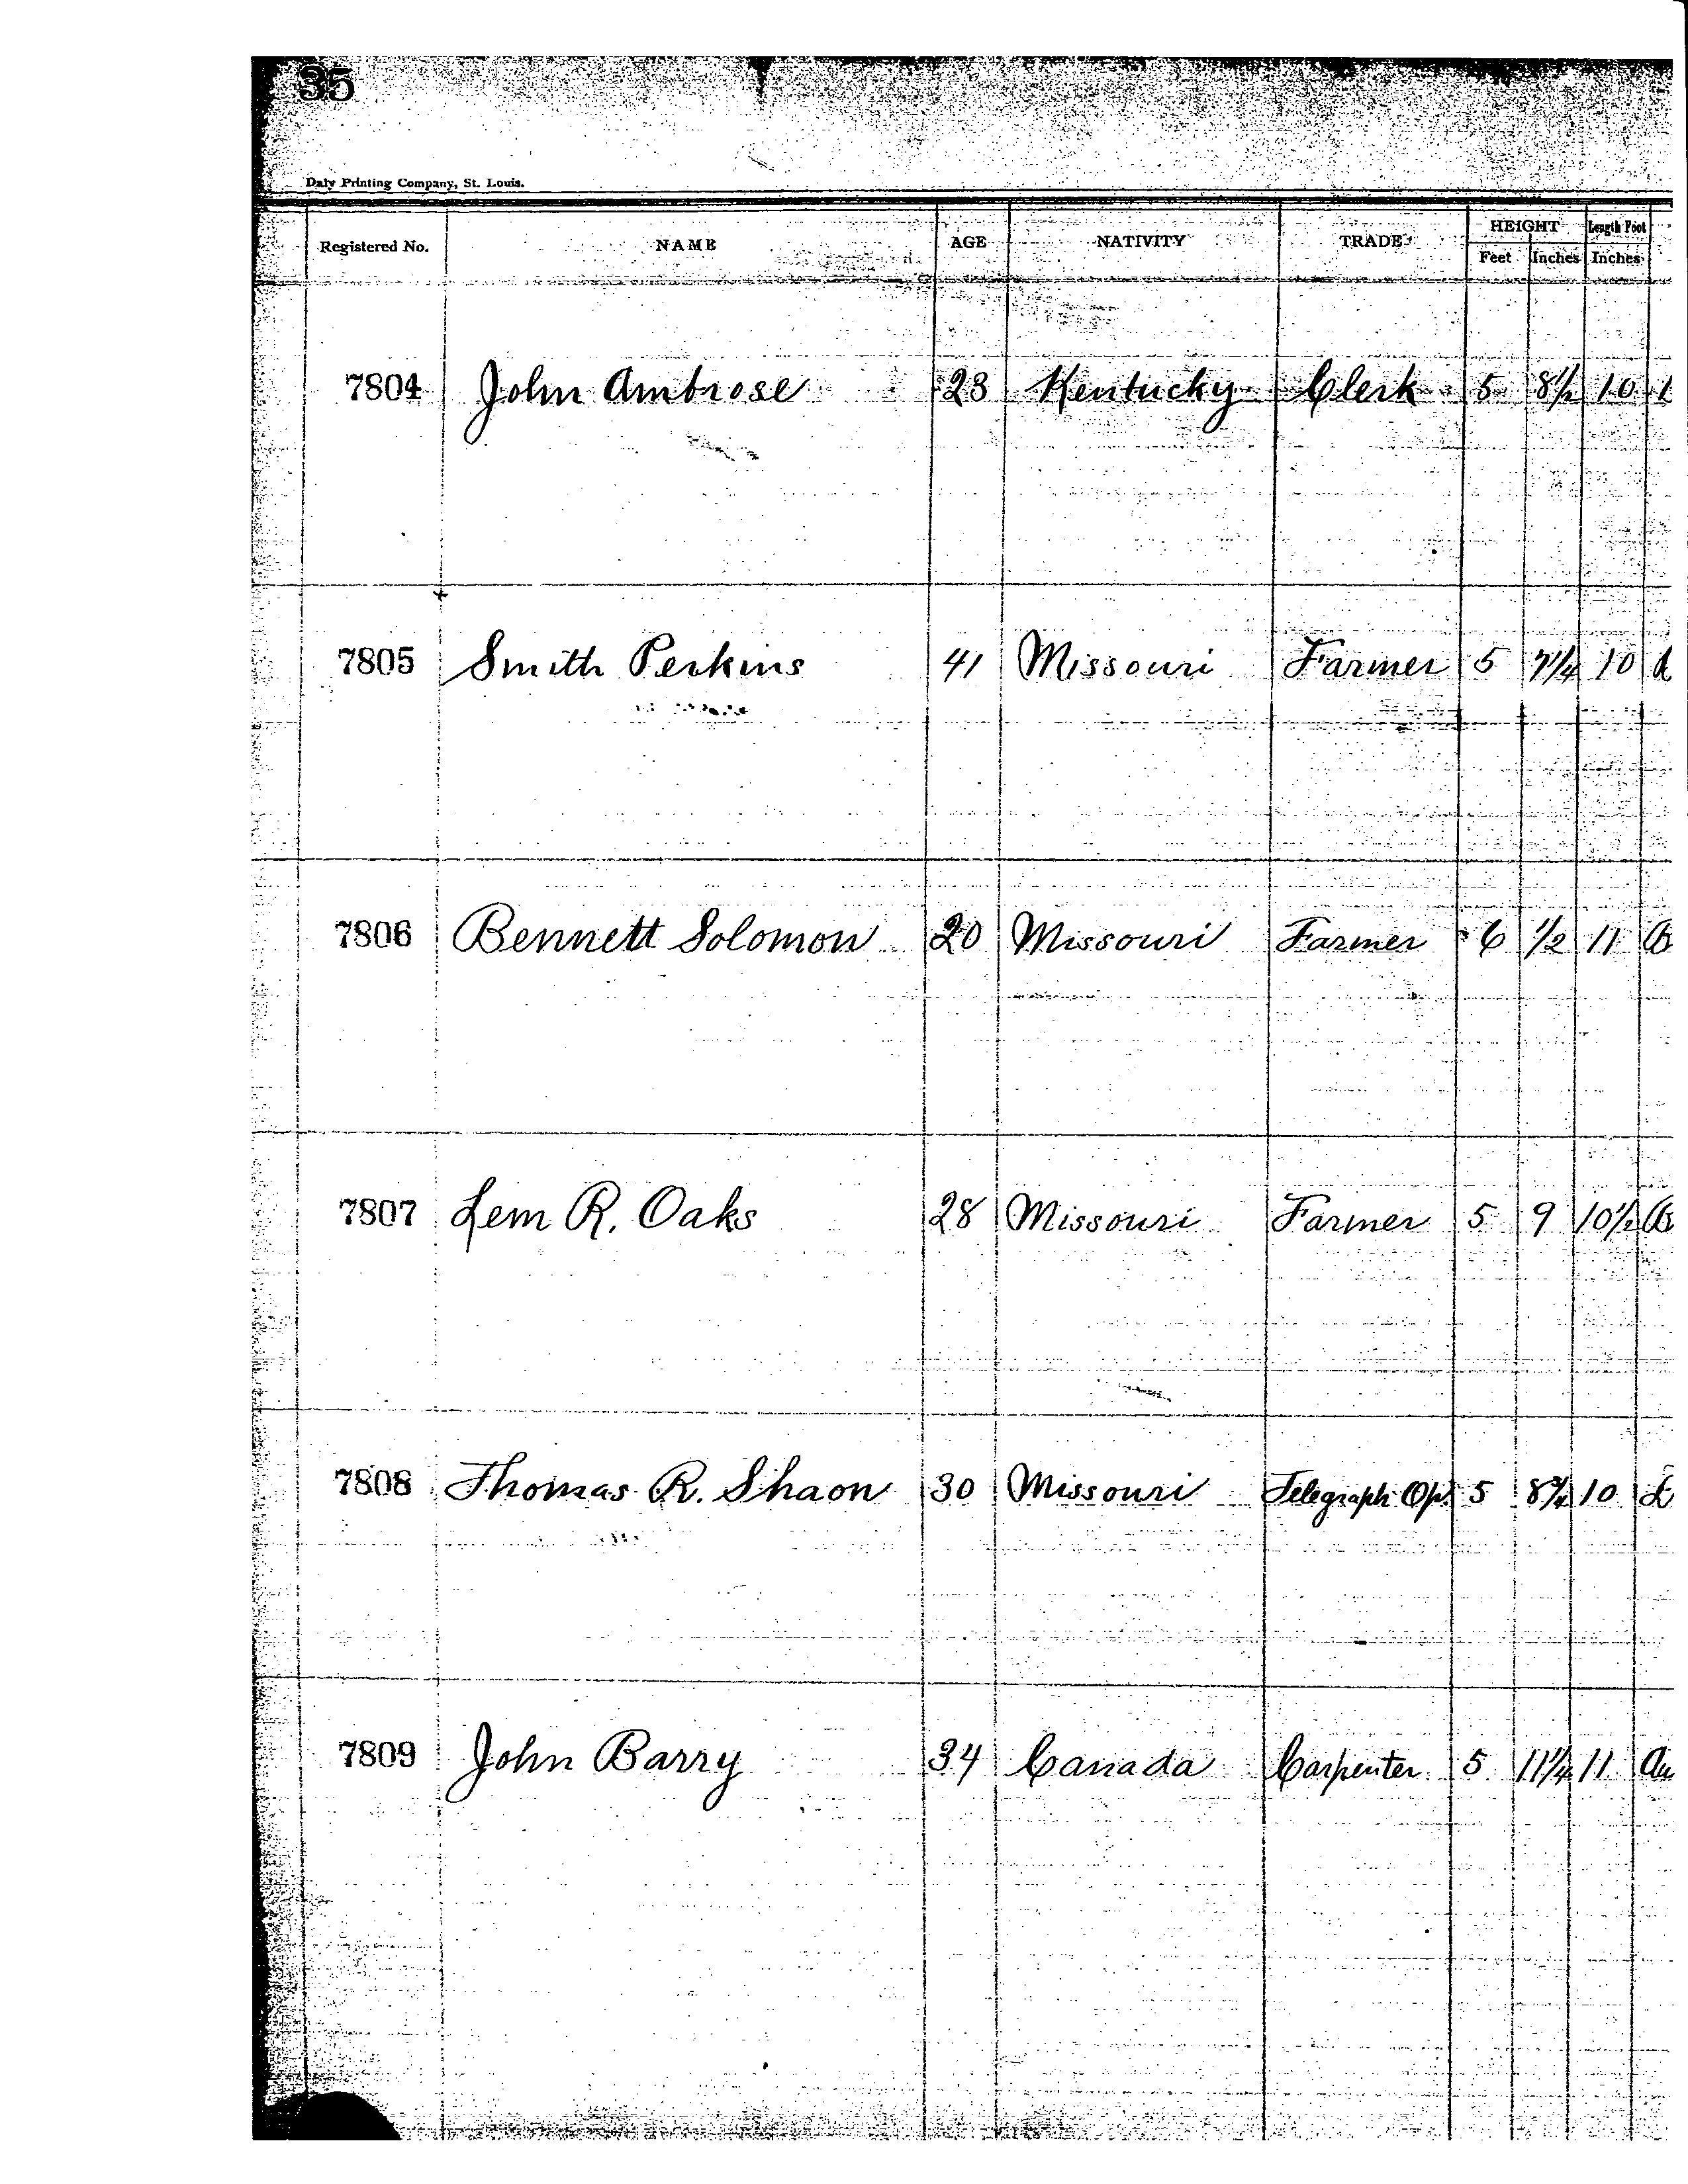 35
Daly Printing Company, St. Louis.
Registered No. NAME AGE NATIVITY TRADE HEIGHT Length Foot
Feet Inches Inches
7804 John Ambrose 23 Kentucky Clerk 5 8 1/2 10
7805 Smith Perkins 41 Missouri Farmer 5 7 1/4 10
7806 Bennett Solomon 20 Missouri Farmer 6 1/2 11
7807 Lem R. Oaks 28 Missouri Farmer 5 9 10 1/2
7808 Thomas R. Shaon 30 Missouri Telegraph Op. 5 8 3/4 10
7809 John Barry 34 Canada Carpenter 5 11 1/4 11